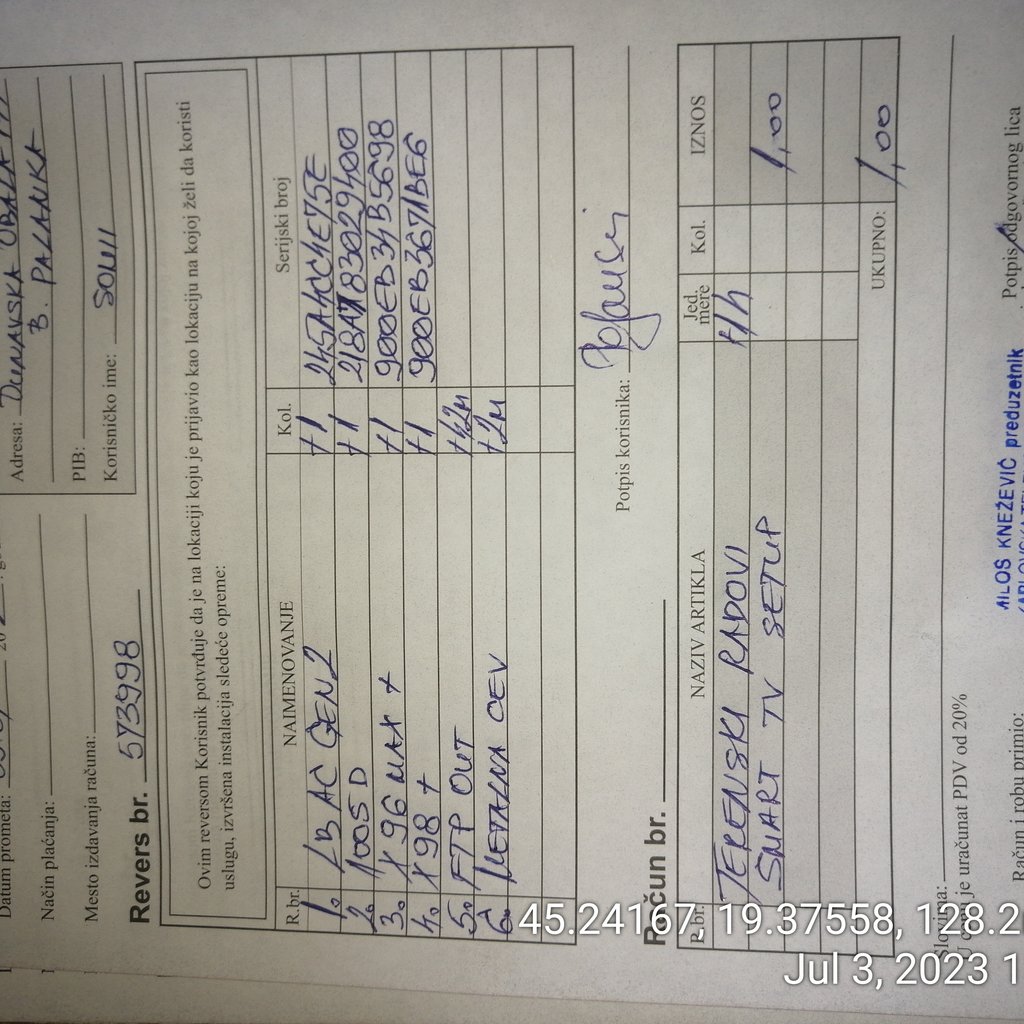 Datum prometa:
Način plaćanja:
Mesto izdavanja računa:
Adresa: DUNAVSKA OBALA
B. PALANKA
PIB:
Korisničko ime:
Revers br. 573998
Ovim reversom Korisnik potvrđuje da je na lokaciji koju je prijavio kao lokaciju na kojoj želi da koristi
uslugu, izvršena instalacija sledeće opreme:
R.br. NAIMENOVANJE Kol. Serijski broj
1. LB AC GEN2 +1 245A4CC14E75E
2. 100S D +1
3. X96 MAX + +1 900EB34B5698
4. X98 + +1 900EB3671BE6
5. FTP OUT
6. METALNA CEV +2M
Potpis korisnika:
Račun br.
R.br. NAZIV ARTIKLA Jed. mere Kol. IZNOS
TERENSKI RADOVI H/h
SMART TV SETUP 1,00
UKUPNO: 1,00
Slovima:
U cenu je uračunat PDV od 20%
Račun i robu primio:
MILOŠ KNEŽEVIĆ preduzetnik
Potpis odgovornog lica
45.24167, 19.37558, 128.2
Jul 3, 2023 1